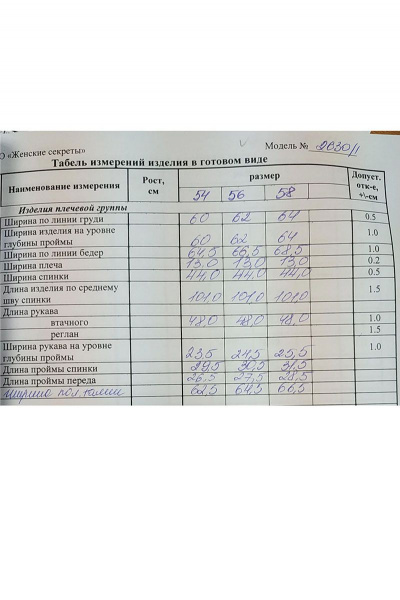 О «Женские секреты» Модель № 2630/1
Табель измерений изделия в готовом виде
Наименование измерения Рост, см размер Допуст. отк-е, +\-см
54 56 58
Изделия плечевой группы
Ширина по линии груди 60 62 64 0.5
Ширина изделия на уровне
глубины проймы 60 62 64 1.0
Ширина по линии бедер 64,5 66,5 68,5 1.0
Ширина плеча 13,0 13,0 13,0 0.2
Ширина спинки 44,0 44,0 44,0 0.5
Длина изделия по среднему
шву спинки 101,0 101,0 101,0 1.5
Длина рукава
втачного 48,0 48,0 48,0 1.0
реглан 1.5
Ширина рукава на уровне
глубины проймы 23,5 24,5 25,5 1.0
Длина проймы спинки 29,5 30,5 31,5
Длина проймы переда 26,5 27,5 28,5
ширина по талии 62,5 64,5 66,5